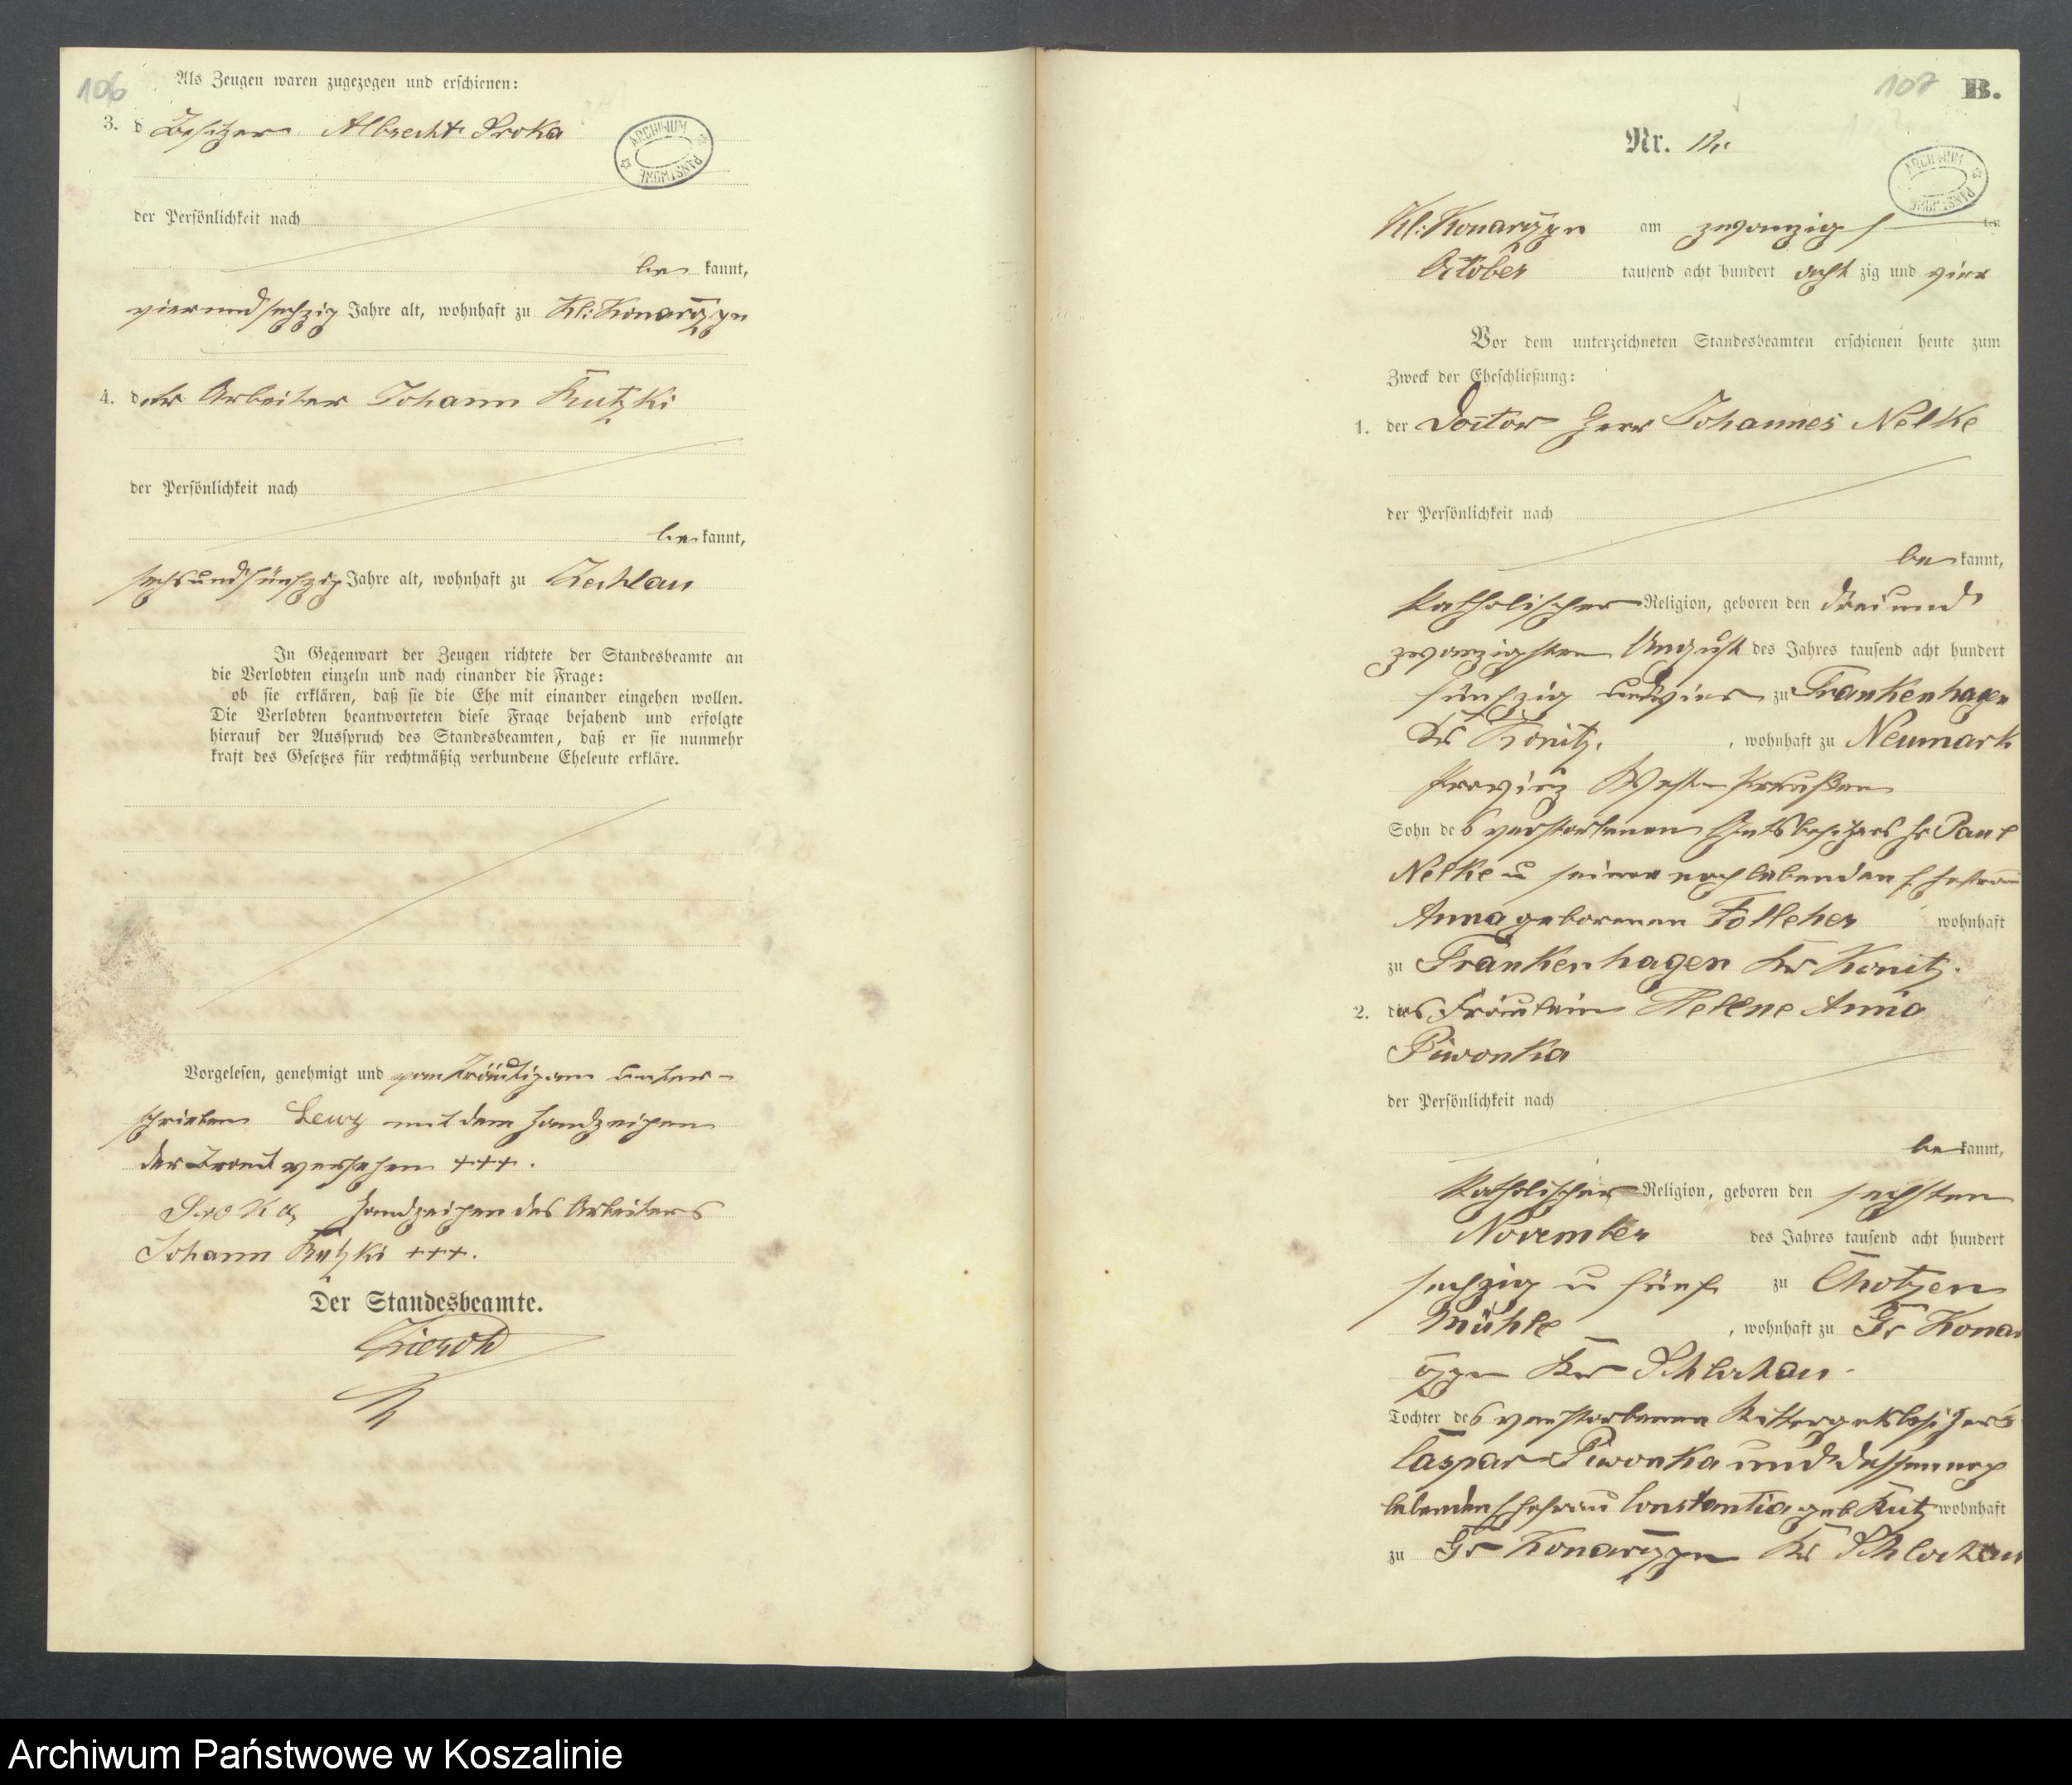 106
Als Zeugen waren zugezogen und erschienen:
3. d Besitzer Albrecht Sroka
ARCHIWUM PAŃSTWOWE
der Persönlichkeit nach
be kannt,
vierundsechzig Jahre alt, wohnhaft zu Kl: Konarczyn
4. der Arbeiter Johann Kutzki
der Persönlichkeit nach
be kannt,
sechsundfünfzig Jahre alt, wohnhaft zu Zechlau
In Gegenwart der Zeugen richtete der Standesbeamte an
die Verlobten einzeln und nach einander die Frage:
ob sie erklären, daß sie die Ehe mit einander eingehen wollen.
Die Verlobten beantworteten diese Frage bejahend und erfolgte
hierauf der Ausspruch des Standesbeamten, daß er sie nunmehr
kraft des Gesetzes für rechtmäßig verbundene Eheleute erkläre.
Vorgelesen, genehmigt und vom Bräutigam unter-
schrieben mit dem Handzeichen
der Braut versehen +++.
Sroka, Handzeichen des Arbeiters
Johann Kutzki +++.
Der Standesbeamte.
107 B.
Nr. 12.
ARCHIWUM PAŃSTWOWE
Kl: Konarczyn am zwanzigs ten
October tausend acht hundert acht zig und vier
Vor dem unterzeichneten Standesbeamten erschienen heute zum
Zweck der Eheschließung:
1. der Doctor Herr Johannes Nelke
der Persönlichkeit nach
be kannt,
katholischer Religion, geboren den dreiund
zwanzigsten August des Jahres tausend acht hundert
fünfzig und vier zu Frankenhagen
Kr Konitz. , wohnhaft zu Neumark
Provinz West-Preußen
Sohn des verstorbenen Gutsbesitzers Hr Paul
Nelke u seiner noch lebenden Ehefrau
Anna geborenen Folleher wohnhaft
zu Frankenhagen Kr Konitz.
2. das Fräulein Helene Anna
Piwonka
der Persönlichkeit nach
be kannt,
katholischer Religion, geboren den sechsten
November des Jahres tausend acht hundert
sechzig u fünf zu Chotzen
Mühle , wohnhaft zu Gr Konar
czyn Kr Schlochau.
Tochter des verstorbenen Rittergutsbesitzers
Caspar Piwonka und dessen noch
lebenden Ehefrau Constantia geb Kutz wohnhaft
zu Gr Konarczyn Kr Schlochau
Archiwum Państwowe w Koszalinie